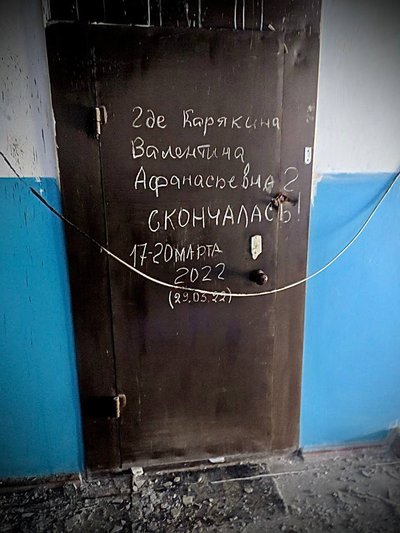 Где Карякина
Валентина
Афанасьевна?
СКОНЧАЛАСЬ!
17-20МАРТА
2022
(29.03.22)